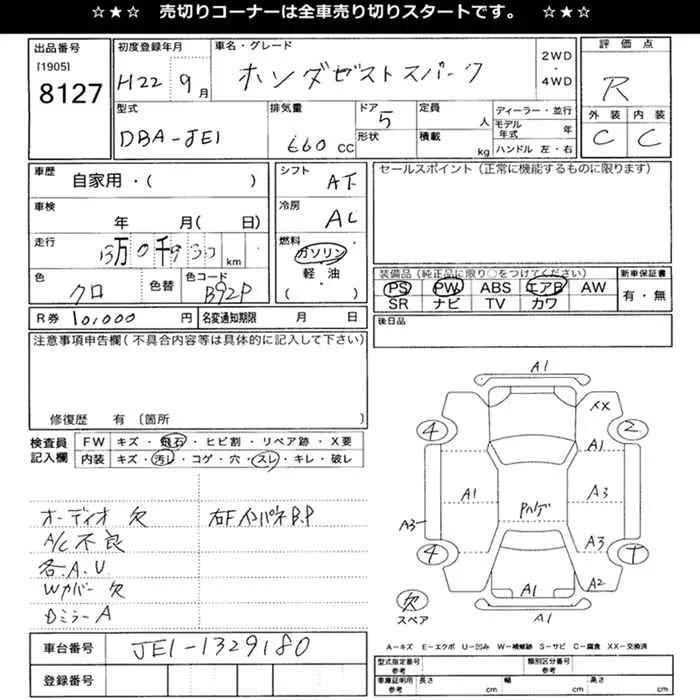 ☆★☆ 売切りコーナーは全車売り切りスタートです。 ☆★☆
出品番号 初度登録年月 車名・グレード 2WD・4WD 評価点
[1905]
8127 H22 9月 ホンダゼストスパーク R
型式 排気量 ドア 定員 ディーラー・並行 外装 内装
DBA-JE1 660cc 5 人 モデル年式 年 C C
形状 積載 kg ハンドル 左・右
車歴 自家用・( ) シフト AT セールスポイント(正常に機能するものに限ります)
車検 年 月( 日) 冷房 AC
走行 万 千 km 燃料 ガソリン 軽油 ( )
装備品(純正品に限り○をつけてください) 新車保証書
色 クロ 色替 色コード B92P PS PW ABS エアB AW 有・無
SR ナビ TV カワ
R券 10,000 円 名変通知期限 月 日 後日品
注意事項申告欄(不具合内容等は具体的に記入して下さい)
修復歴 有 〔箇所 〕
検査員記入欄 FW キズ・飛石・ヒビ割・リペア跡・X要
内装 キズ・汚レ・コゲ・穴・スレ・キレ・破レ
オーディオ欠 右Fインパネ B.P
A/C不良
各A.U
Wカバー欠
DミラーA
A1
XX
4 2
A1
A1 A3
A3
A3
4
A1 A2
欠
スペア A1
A-キズ E-エクボ U-凹み W-補修跡 S-サビ C-腐食 XX-交換済
車台番号 JE1-1329180
型式指定番号 参考 類別区分番号 参考
登録番号
車庫証明用 参考 長さ cm 幅 cm 高さ cm